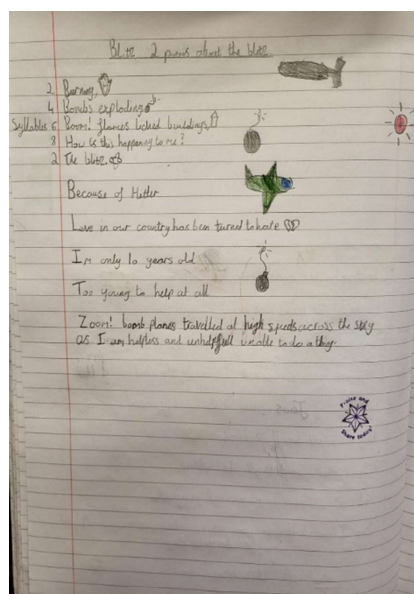 Blitz 2 poems about the blitz
2 Burning,
4 Bombs exploding
Syllables 6 Boom! flames licked buildings,
8 How is this happening to me?
2 The blitz,
Because of Hitler
Love in our country has been turned to hate
Im only 10 years old
Too young to help at all
Zoom! bomb planes travelled at high speeds across the sky
as I am helpless and unhelpfull unable to do a thing.
Praise and
Share today!